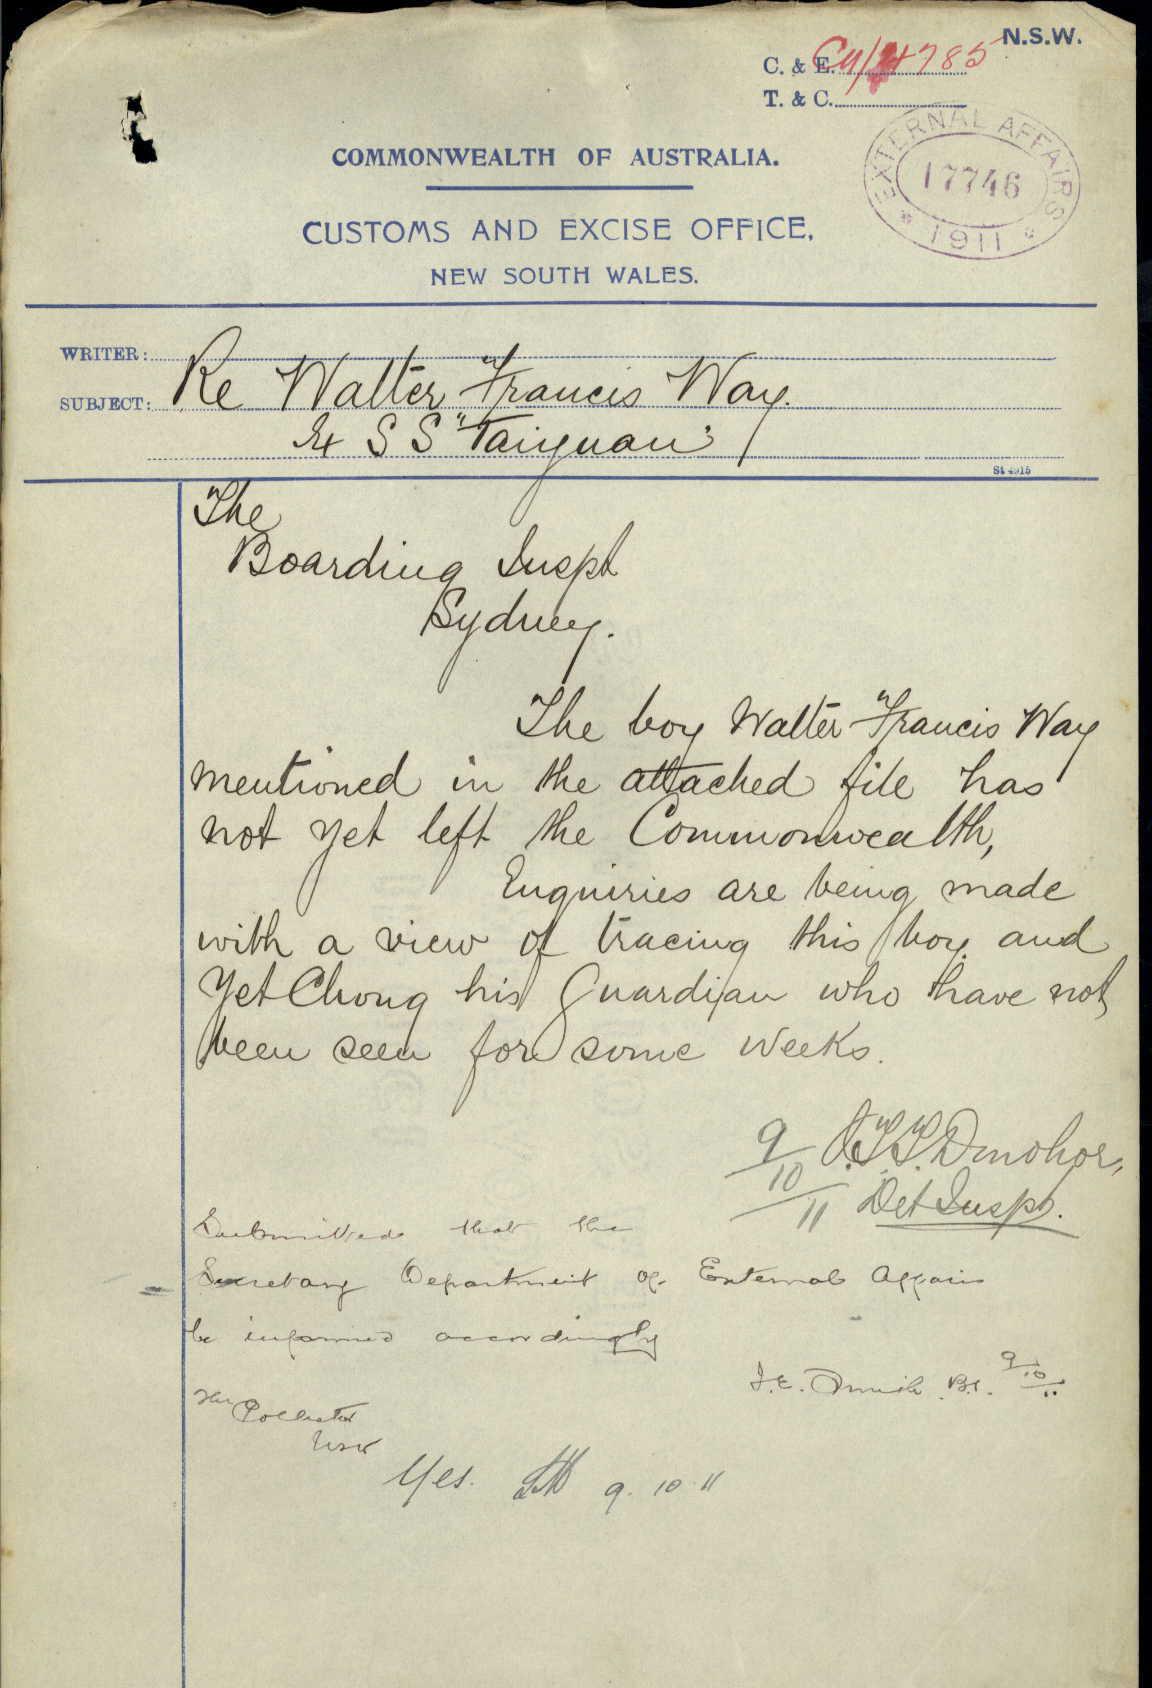 N.S.W.
C. & E. 14785
T. & C.
EXTERNAL AFFAIRS
17746
1911
COMMONWEALTH OF AUSTRALIA.
CUSTOMS AND EXCISE OFFICE,
NEW SOUTH WALES.
WRITER:
SUBJECT: Re Walter Francis Way.
Ex S S "Taiyuan"
St 4915
The
Boarding Inspt
Sydney.
The boy Walter Francis Way
mentioned in the attached file has
not yet left the Commonwealth,
Enquiries are being made
with a view of tracing this boy and
Yet Chong his Guardian who have not
been seen for some weeks.
9/10/11 Donohoe,
Det Inspr.
Submitted that the
Secretary Department of External Affairs
be informed accordingly
J.E. B.I. 9/10/11
The Collector
NSW
Yes. 9.10.11